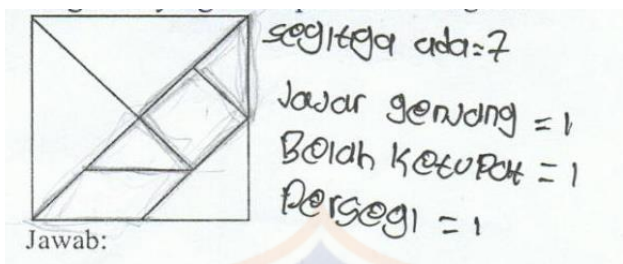 segitga ada=7
Jajar genjang = 1
Belah Ketupat = 1
Persegi = 1
Jawab: